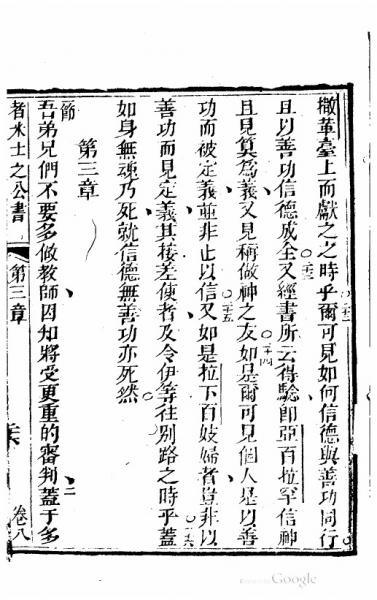 撒革臺上而獻之之時乎爾可見如何信德與善功同行
且以善功信德成全又經書所云得騐即亞百拉罕信神
且見筭為義又見稱做神之友如是爾可見個人是以善
功而被定義並非止以信又如是拉下百妓婦者豈非以
善功而見定義其接差使者及令伊等徃別路之時乎蓋
如身無魂乃死就信德無善功亦死然
第三章
節
吾弟兄們不要多做教師因知將受更重的審判蓋于多
者米士之公書
第三章
卷八
Google